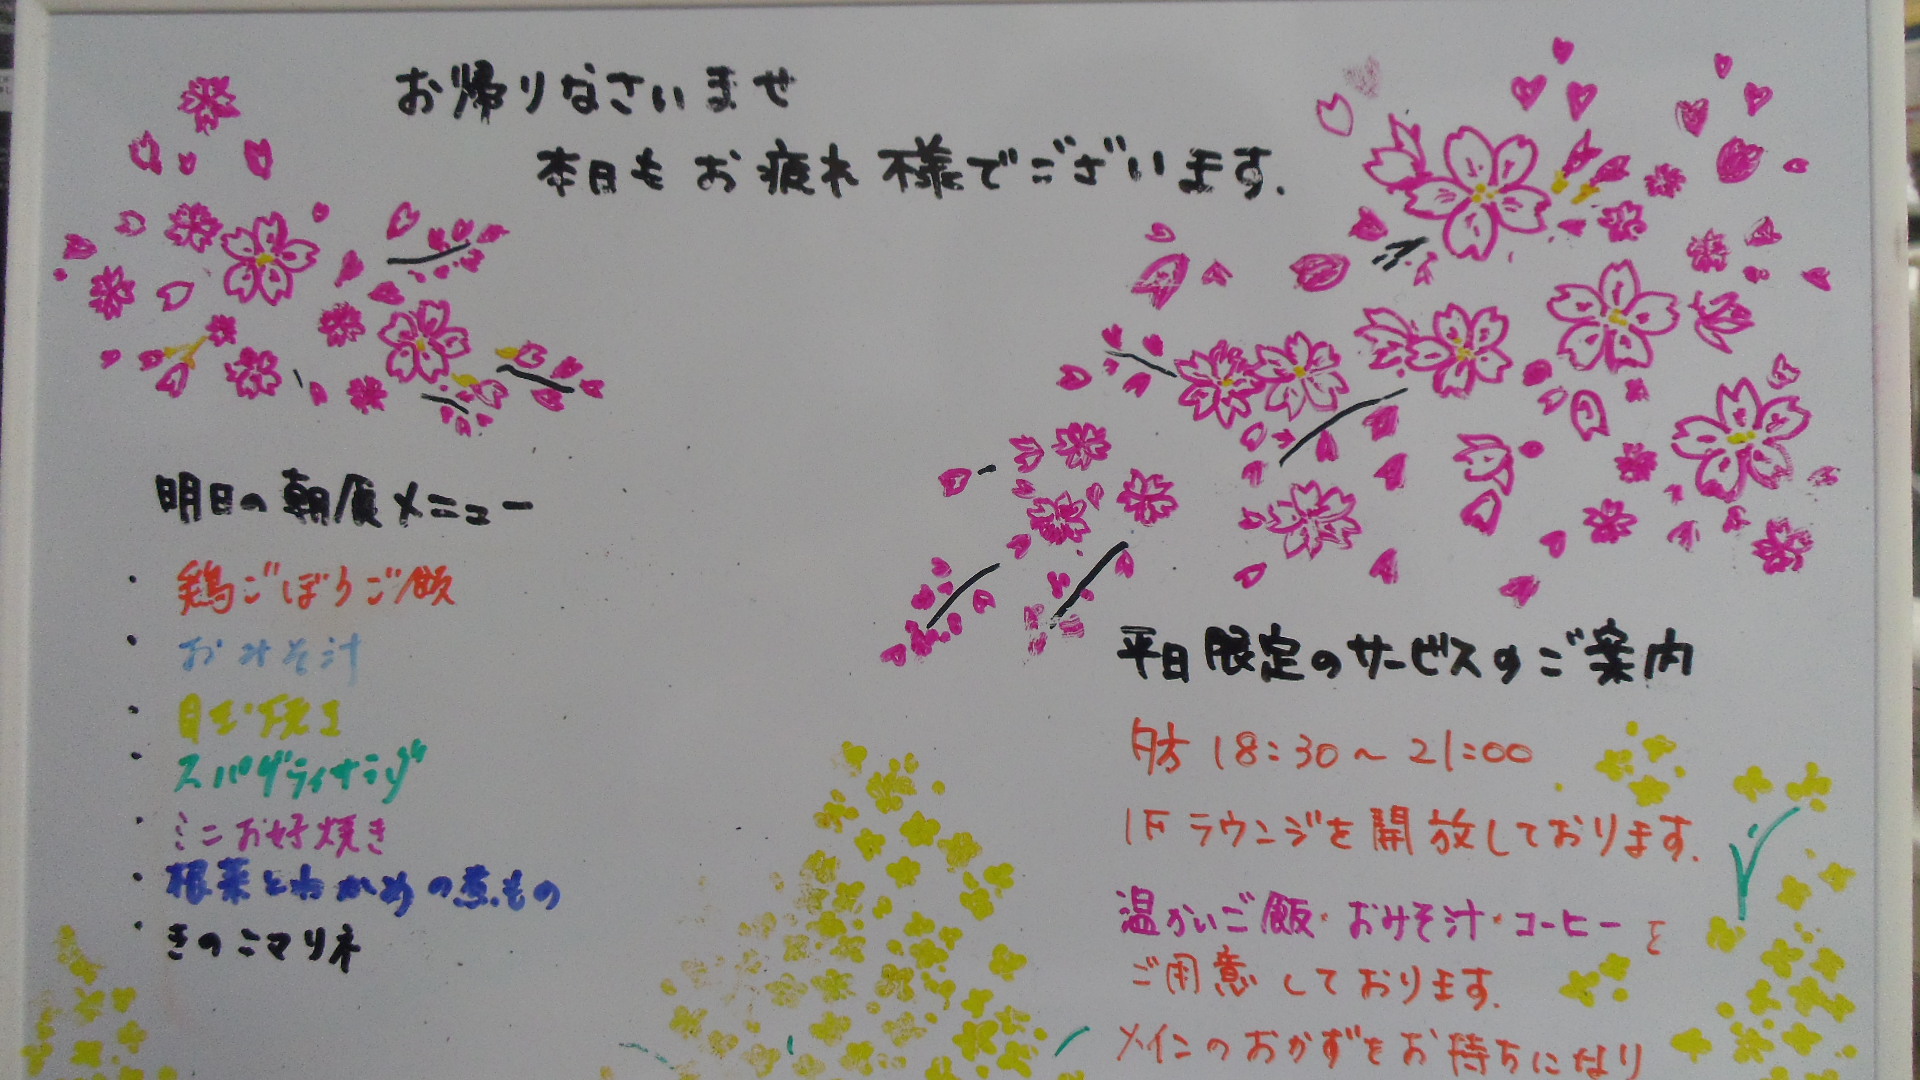 お帰りなさいませ
本日もお疲れ様でございます.
明日の朝食メニュー
・鶏ごぼうご飯
・おみそ汁
・目玉焼き
・スパゲティサラダ
・ミニお好焼き
・根菜とわかめの煮もの
・きのこマリネ
平日限定のサービスのご案内
夕方 18:30〜21:00
1Fラウンジを開放しております.
温かいご飯・おみそ汁・コーヒーを
ご用意しております.
メインのおかずをお持ちになり